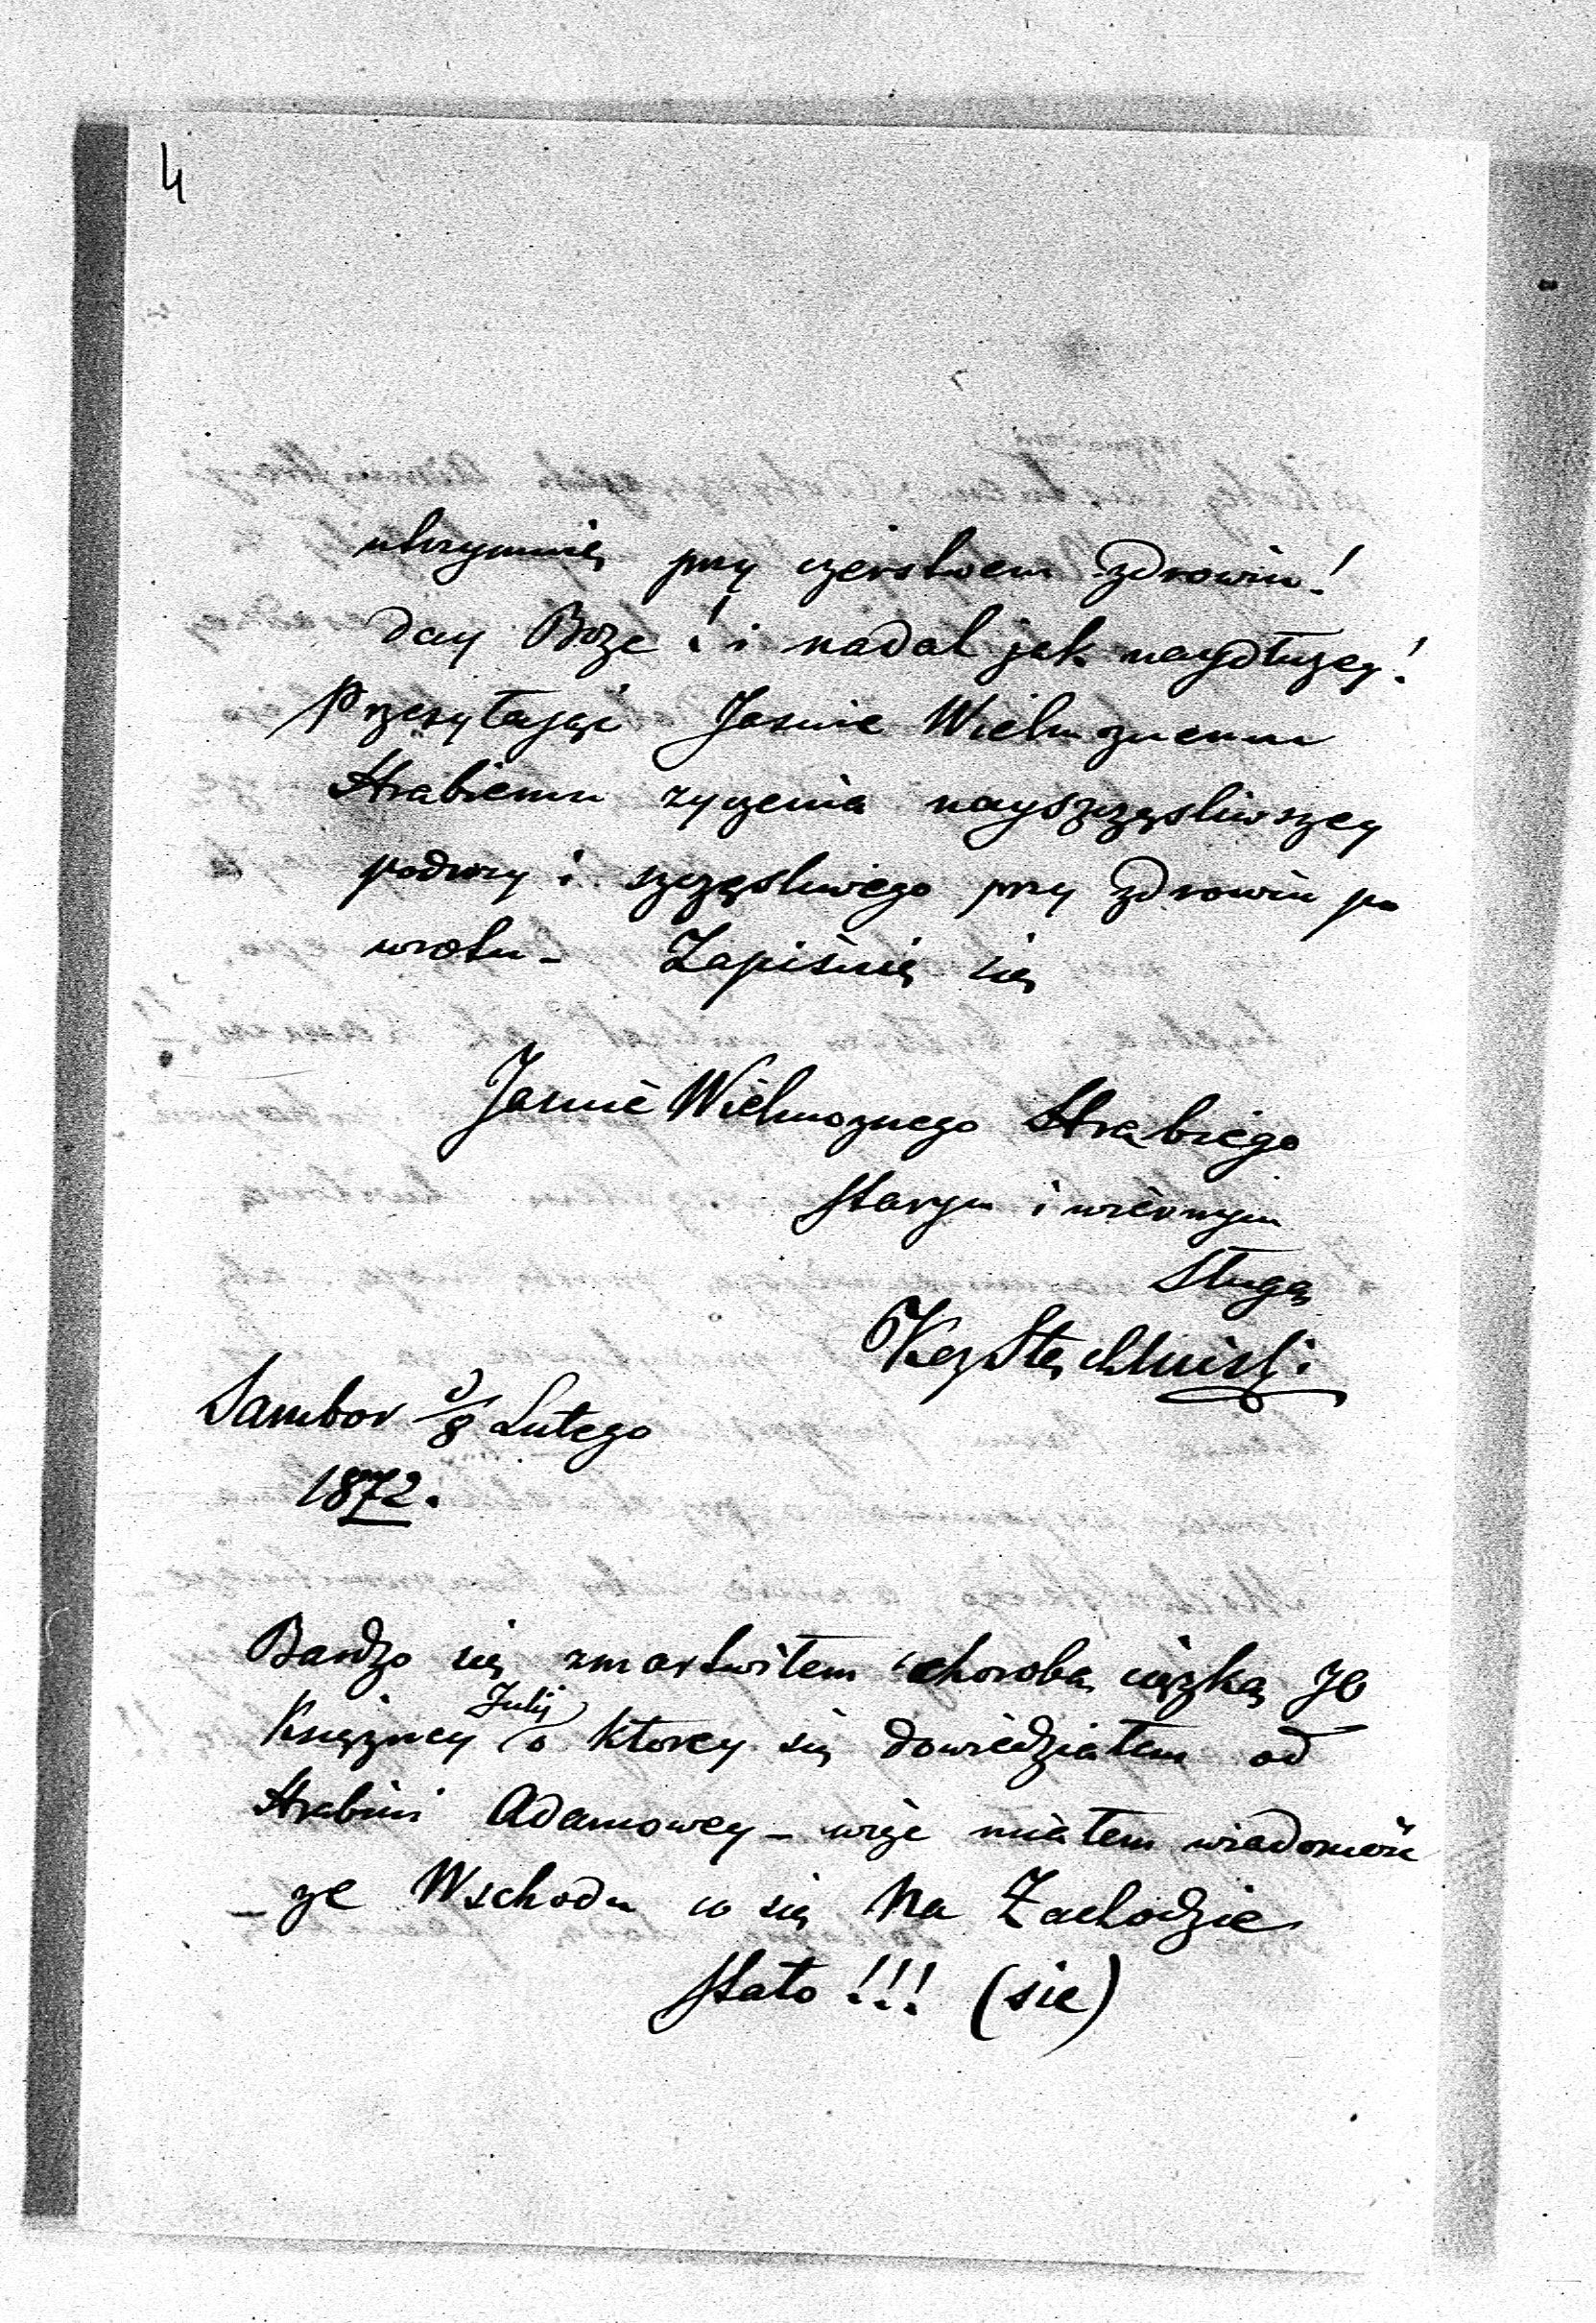 4
utrzymuię przy czerstwem zdrowiu!
day Boze! i nadal jak naydłuzey!
Przesyłając Jasnie Wielmoznemu
Hrabiemu zyczenia nayszczęsliwszey
podrozy i szczęsliwego przy zdrowiu po
wrotu - Zapisuię się
Jasnie Wielmoznego Hrabiego
starym i wiernym
sługą
Sambor d/8 Lutego
1872.
Bardzo się zmartwiłem chorobą cięzką JO
Księzney Julij o ktorey się dowiedziałem od
Hrabini Adamowey - więc miałem wiadomośc
- ze Wschodu co się na Zachodzie
stało!!! (sic)